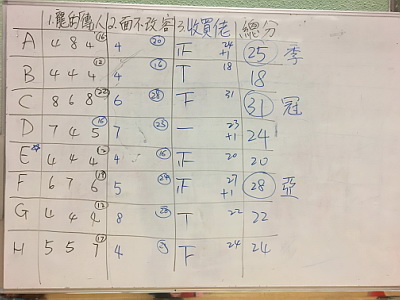 1.麗的傳人 2.面不改容 3.收買佬 總分
A 4 8 4 16 4 20 正 24 +1 25 季
B 4 4 4 12 4 16 T 18 18
C 8 6 8 22 6 28 下 31 31 冠
D 7 4 5 16 7 23 一 23 +1 24
E 4 4 4 12 4 16 正 20 20
F 6 7 6 19 5 24 正 27 +1 28 亞
G 4 4 4 12 8 20 T 22 22
H 5 5 7 17 4 21 下 24 24